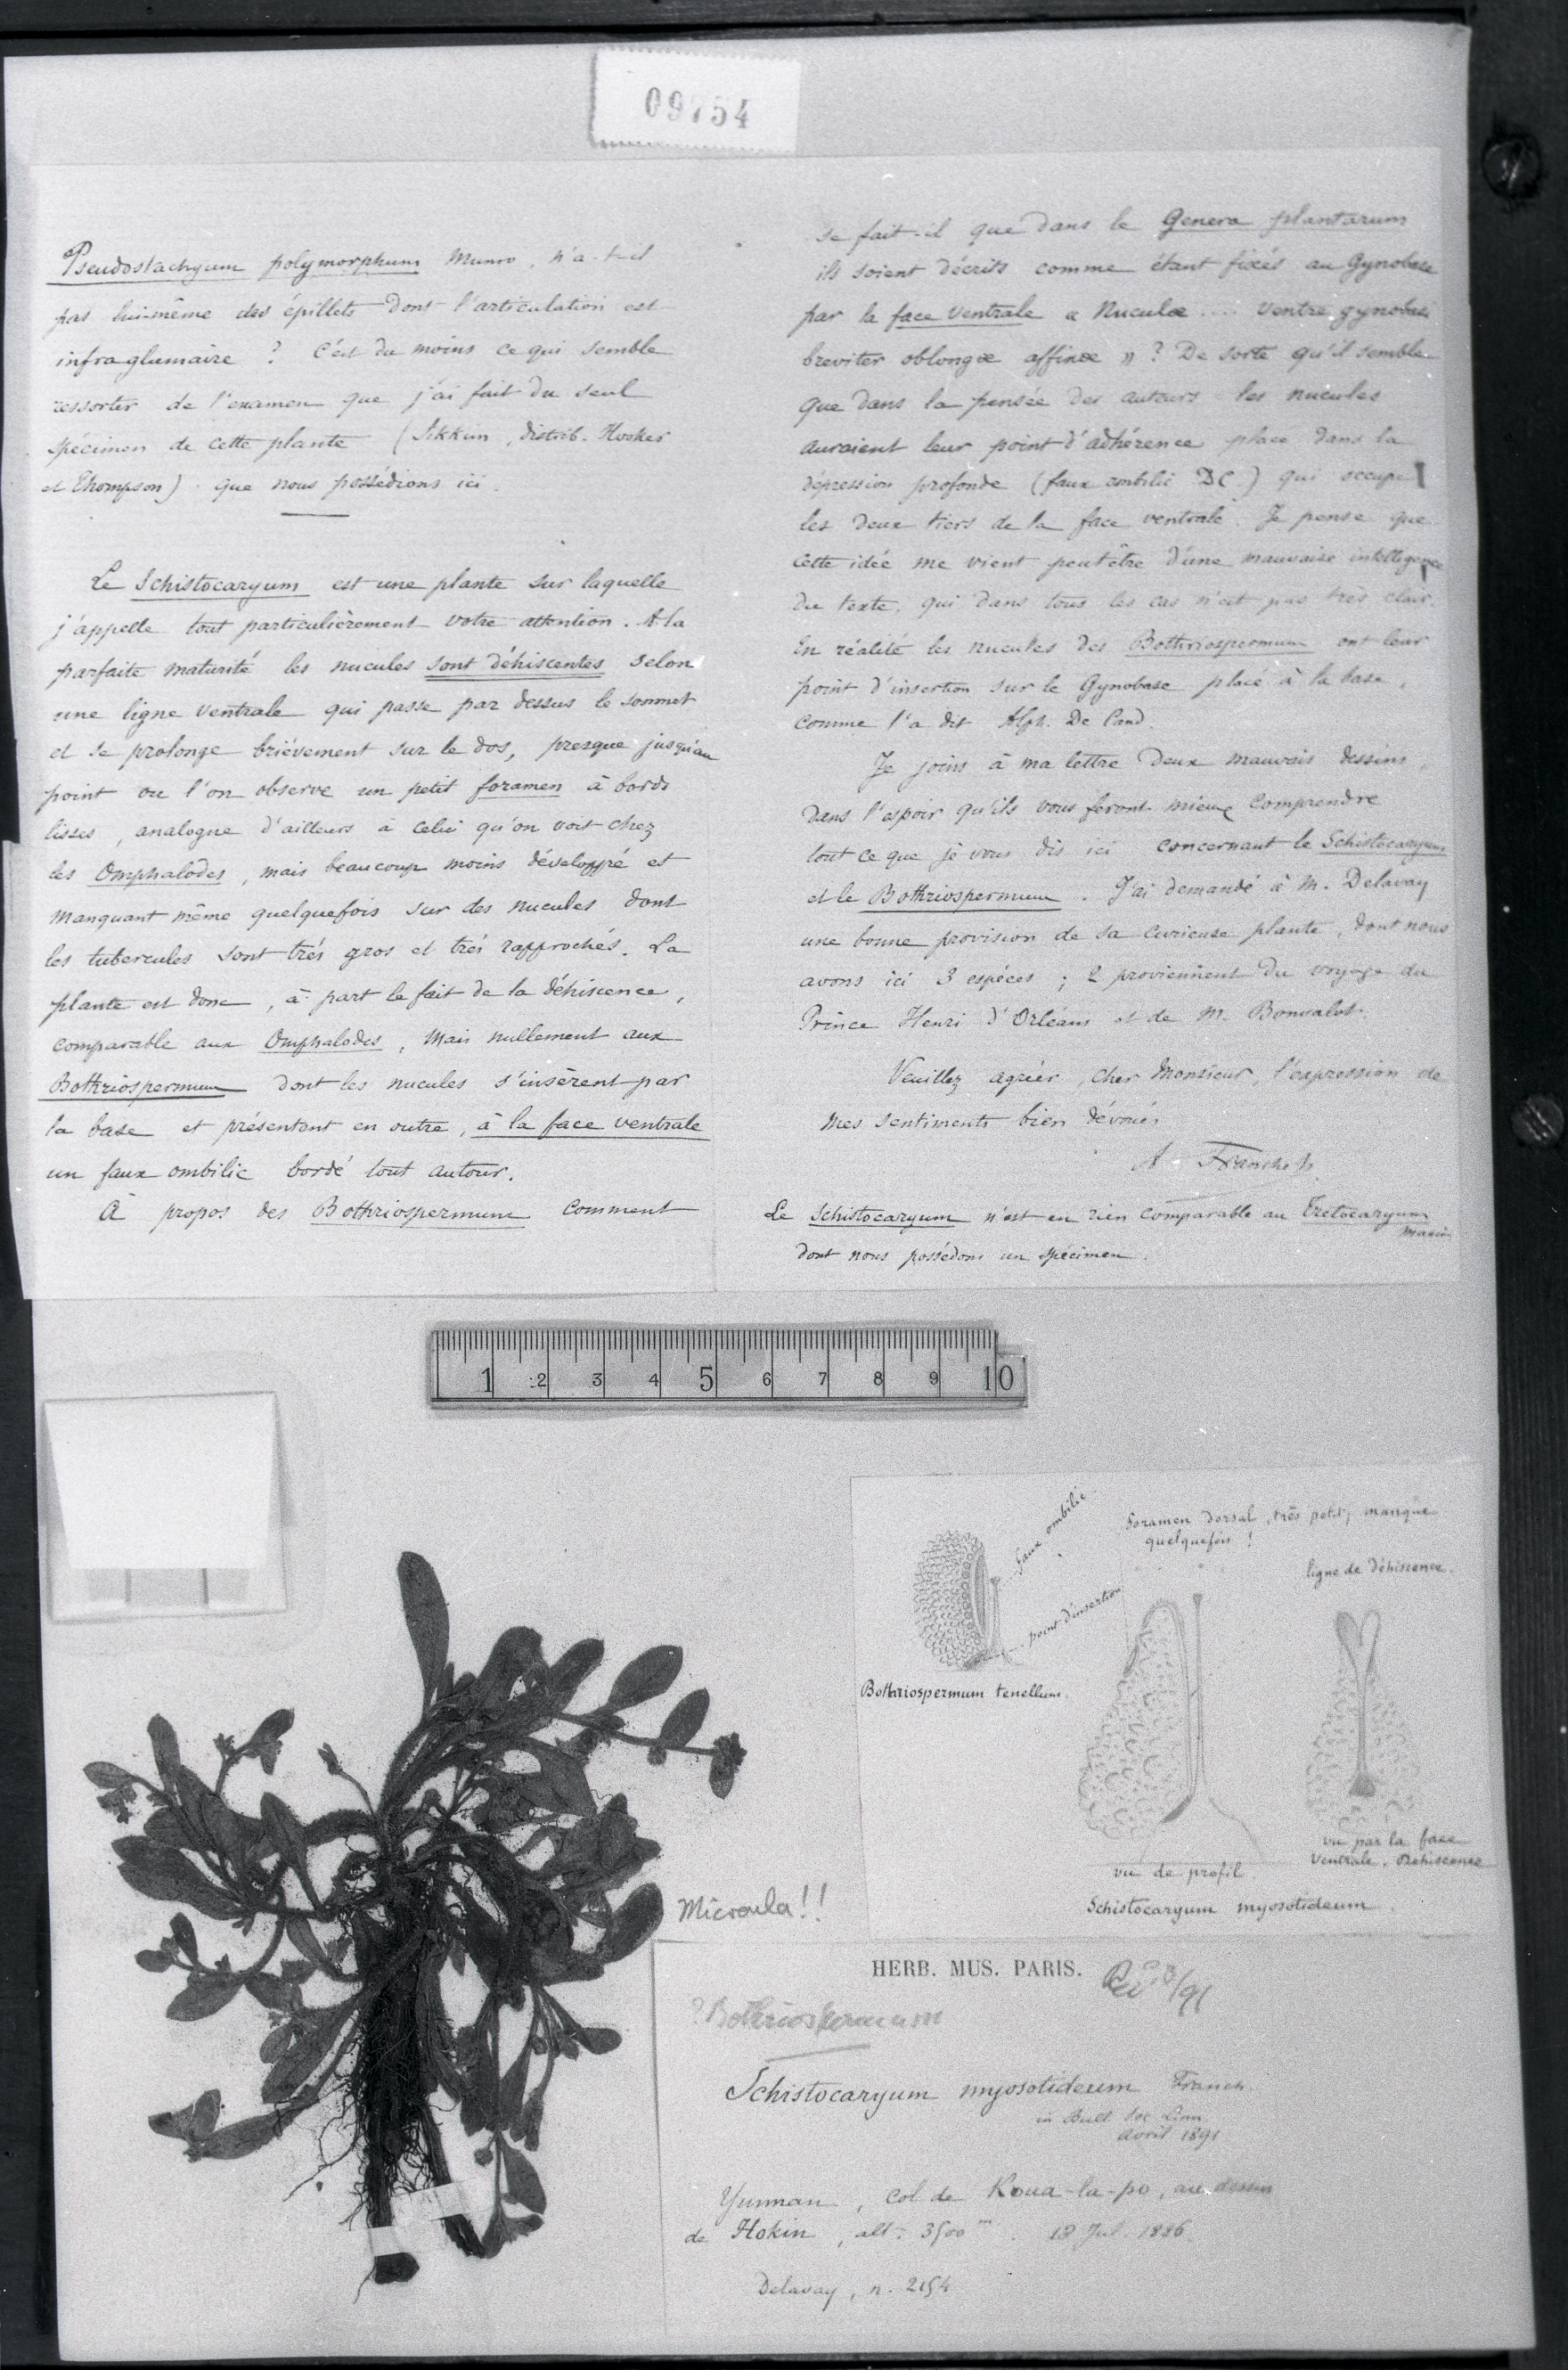 09754
Pseudostachyum polymorphum Munro, n'a-t-il
pas lui-même des épillets dont l'articulation est
infraglumaire ? C'est du moins ce qui semble
ressortir de l'examen que j'ai fait du seul
spécimen de cette plante (Sikkim, distrib. Hooker
et Thompson) que nous possédions ici.
Le Schistocaryum est une plante sur laquelle
j'appelle tout particulièrement votre attention. A la
parfaite maturité les nucules sont déhiscentes selon
une ligne ventrale qui passe par dessus le sommet
et se prolonge brièvement sur le dos, presque jusqu'au
point ou l'on observe un petit foramen à bords
lisses, analogue d'ailleurs à celui qu'on voit chez
les Omphalodes, mais beaucoup moins développé et
manquant même quelquefois sur des nucules dont
les tubercules sont très gros et très rapprochés. La
plante est donc, à part le fait de la déhiscence,
comparable aux Omphalodes, mais nullement aux
Bothriospermum dont les nucules s'insèrent par
la base et présentent en outre, à la face ventrale
un faux ombilic bordé tout autour.
A propos des Bothriospermum comment
se fait-il que dans le Genera plantarum
ils soient décrits comme étant fixés au Gynobase
par la face ventrale « Nuculæ .... ventre gynobasi
breviter oblongæ affixæ » ? De sorte qu'il semble
que dans la pensée des auteurs les nucules
auraient leur point d'adhérence placé dans la
dépression profonde (faux ombilic DC.) qui occupe
les deux tiers de la face ventrale. Je pense que
cette idée me vient peut être d'une mauvaise intelligence
du texte, qui dans tous les cas n'est pas très clair.
En réalité les nucules des Bothriospermum ont leur
point d'insertion sur le Gynobase placé à la base,
comme l'a dit Alph. De Cand.
Je joins à ma lettre deux mauvais dessins,
dans l'espoir qu'ils vous feront mieux comprendre
tout ce que je vous dis ici concernant le Schistocaryum
et le Bothriospermum. J'ai demandé à M. Delavay
une bonne provision de sa curieuse plante, dont nous
avons ici 3 espèces ; 2 proviennent du voyage du
Prince Henri d'Orléans et de M. Bonvalot.
Veuillez agréer, cher Monsieur, l'expression de
mes sentiments bien dévoués
A. Franchet
Le Schistocaryum n'est en rien comparable au Tretocaryum
Maxim
dont nous possédons un spécimen.
1 2 3 4 5 6 7 8 9 10
faux ombilic
point d'insertion
Bothriospermum tenellum.
Foramen dorsal, très petit, manque
quelquefois !
ligne de déhiscence.
vu de profil.
vu par la face
ventrale. Déhiscence
Schistocaryum myosotideum.
Microula!!
HERB. MUS. PARIS.
/91
? Bothriospermum
Schistocaryum myosotideum Franch.
in Bull Soc Linn
avril 1891
Yunnan, col de Koua-la-po, au dessus
de Hokin, alt. 3500 m. 18 Jul. 1886.
Delavay, n. 2154